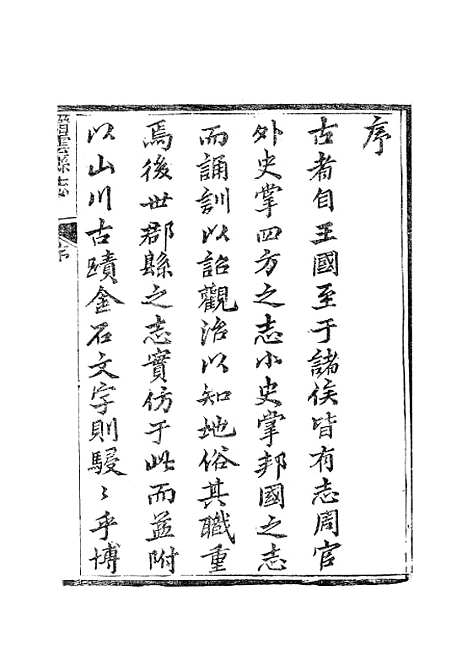 序
古者自王國至于諸侯皆有志周官
外史掌四方之志小史掌邦國之志
而誦訓以詔觀治以知地俗其職重
焉後世郡縣之志實仿于此而益附
以山川古蹟金石文字則駸〻乎博
縉雲縣志
序